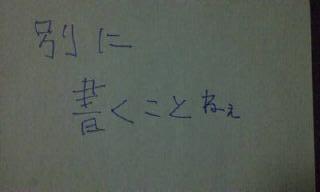 別に
書くことねぇ